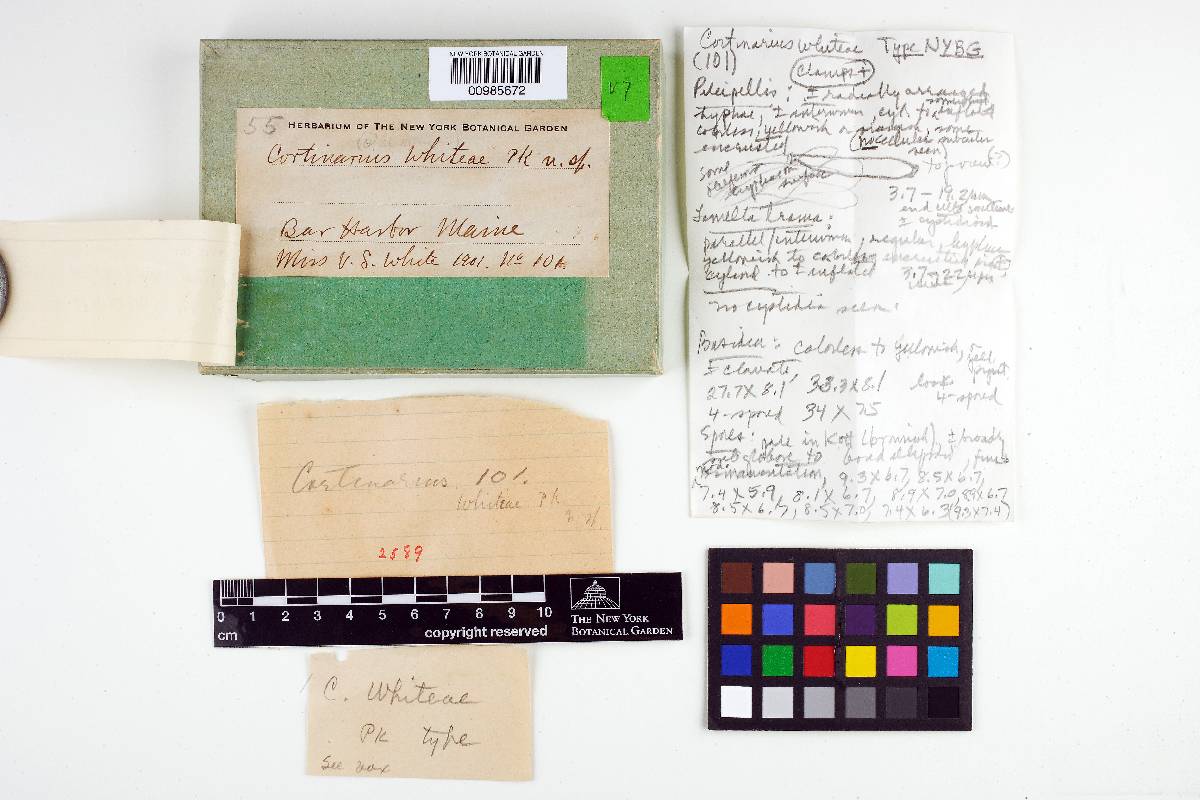 NEW YORK BOTANICAL GARDEN
00985672
V7
55 HERBARIUM OF THE NEW YORK BOTANICAL GARDEN
Cortinarius Whiteae Pk n. sp.
Bar Harbor Maine
Miss V. S. White 1901. No 101.
Cortinarius 101.
Whiteae Pk
n. sp.
2589
0 1 2 3 4 5 6 7 8 9 10
cm
copyright reserved
THE NEW YORK
BOTANICAL GARDEN
C. Whiteae
Pk type
See box
Cortinarius whiteae Type NYBG
(101)
Clamps +
Pileipellis: ± radially arranged
hyphae, ± interwoven, cyl. to inflated
somewhat
colorless, yellowish or some
encrusted (no cellular subcutis
seen)
some
surface
3.7 – 19.2 µm
and cells sometimes
± cystidioid
Lamella trama:
parallel/interwoven, regular, hyphae
yellowish to colorless encrusting
cylind. to ± inflated 3.7–22 µm
no cystidia seen.
Basidia: colorless to yellowish,
± clavate,
27.7 x 8.1 33.3 x 8.1 look
4-spored
4-spored 34 x 7.5
Spores: pale in KOH (brownish), ± broadly
subglobose to broad ellipsoid, fine
ornamentation, 9.3 x 6.7, 8.5 x 6.7,
7.4 x 5.9, 8.1 x 6.7, 8.9 x 7.0, 8.9 x 6.7
8.5 x 6.7, 8.5 x 7.0, 7.4 x 6.3 (9.3 x 7.4)